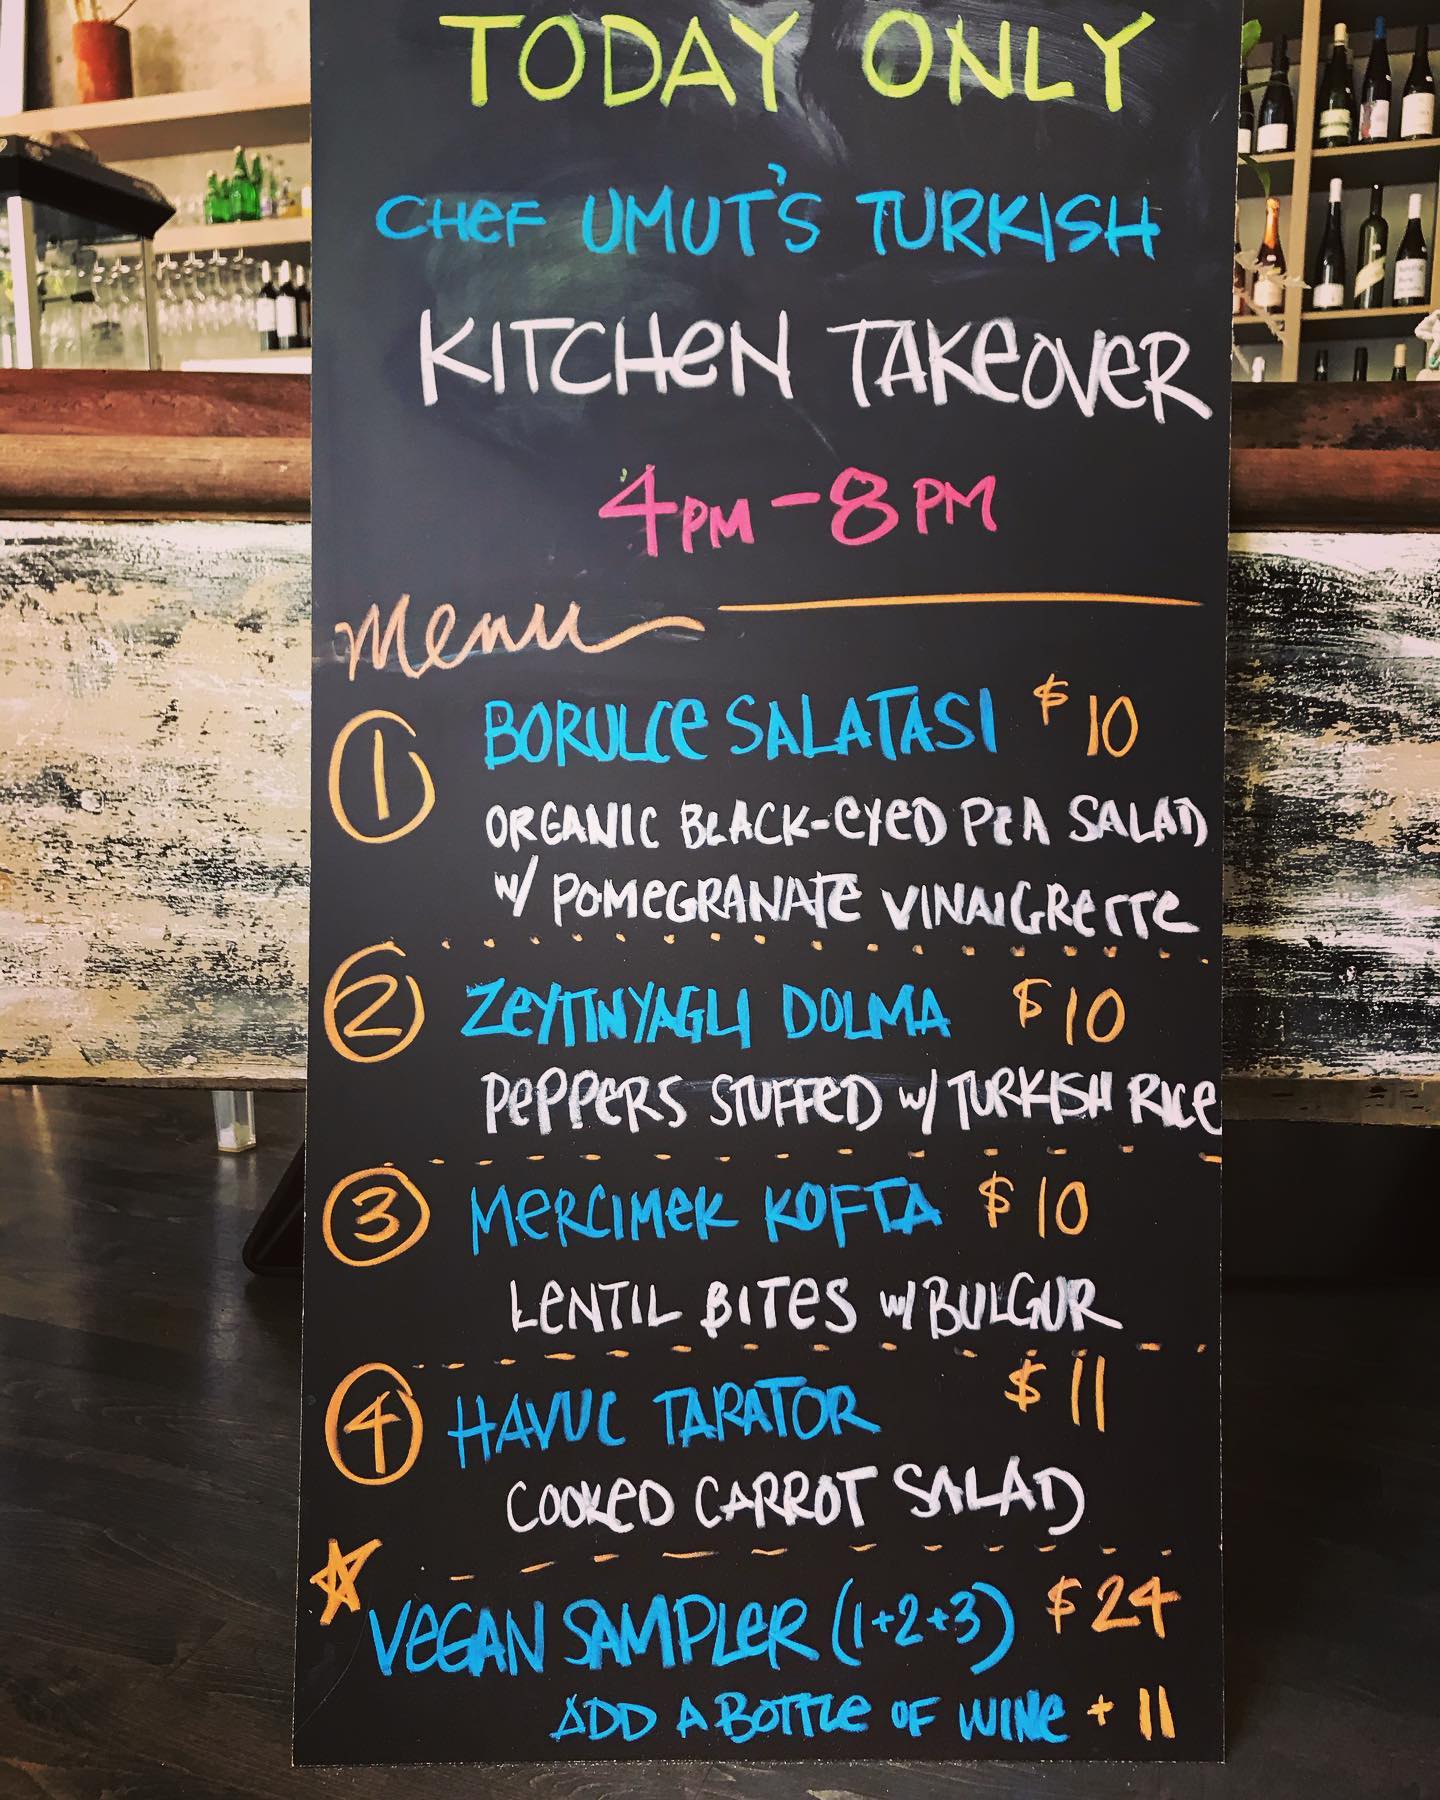 TODAY ONLY
CHEF UMUT'S TURKISH
KITCHEN TAKEOVER
4PM-8PM
Menu
1 BORULCE SALATASI $10
ORGANIC BLACK-EYED PEA SALAD
W/ POMEGRANATE VINAIGRETTE
2 ZEYTINYAGLI DOLMA $10
PEPPERS STUFFED W/ TURKISH RICE
3 MERCIMEK KOFTA $10
LENTIL BITES W/ BULGUR
4 HAVUC TARATOR $11
COOKED CARROT SALAD
VEGAN SAMPLER (1+2+3) $24
ADD A BOTTLE OF WINE + 11